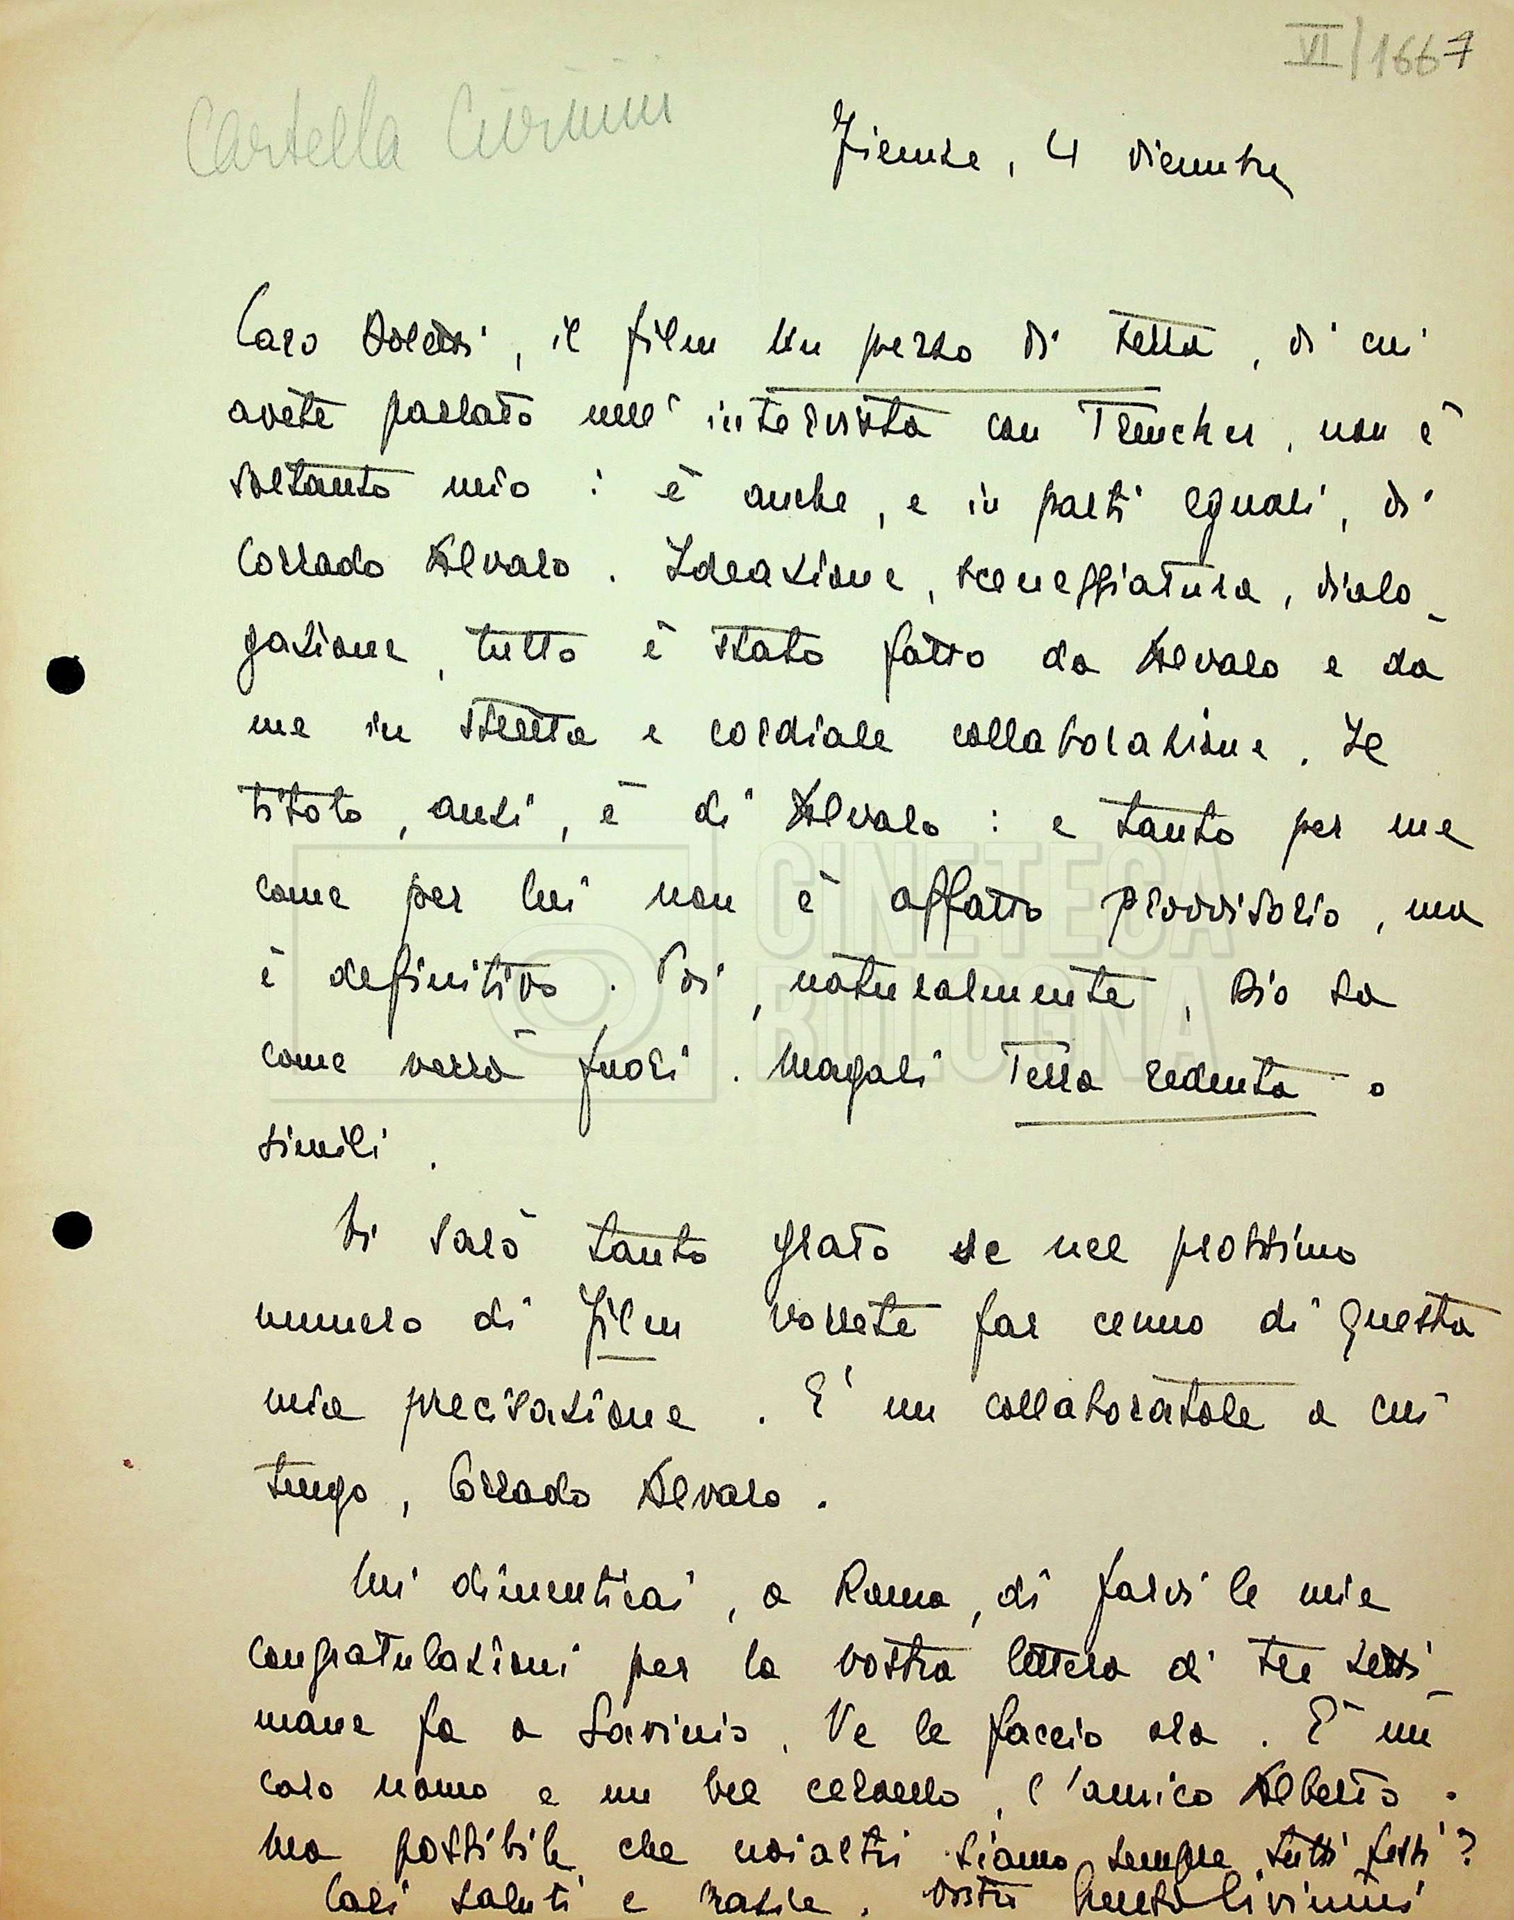 VI/1667
Cartella Civinini
Firenze, 4 dicembre
Caro Doletti, il film Un pezzo di terra, di cui
avete parlato nell'intervista con Trenker, non è
soltanto mio : è anche, e in parti eguali, di
Corrado Alvaro. Ideazione, sceneggiatura, dialo-
gazione, tutto è stato fatto da Alvaro e da
me in stretta e cordiale collaborazione. Il
titolo, anzi, è di Alvaro : e tanto per me
come per lui non è affatto provvisorio, ma
è definitivo. Poi, naturalmente, Dio sa
come verrà fuori. Magari Terra redenta o
simili.
Vi sarò tanto grato se nel prossimo
numero di Film vorrete far cenno di questa
mia precisazione. E' un collaboratore a cui
tengo, Corrado Alvaro.
Mi dimenticai, a Roma, di farvi le mie
congratulazioni per la vostra lettera di tre setti-
mane fa a Savinio. Ve le faccio ora. E' un
caro uomo e un bel cervello, l'amico Alberto.
Ma possibile che noialtri siamo sempre tutti fessi?
Cari saluti e grazie. Vostro Guelfo Civinini
CINETECA
BOLOGNA